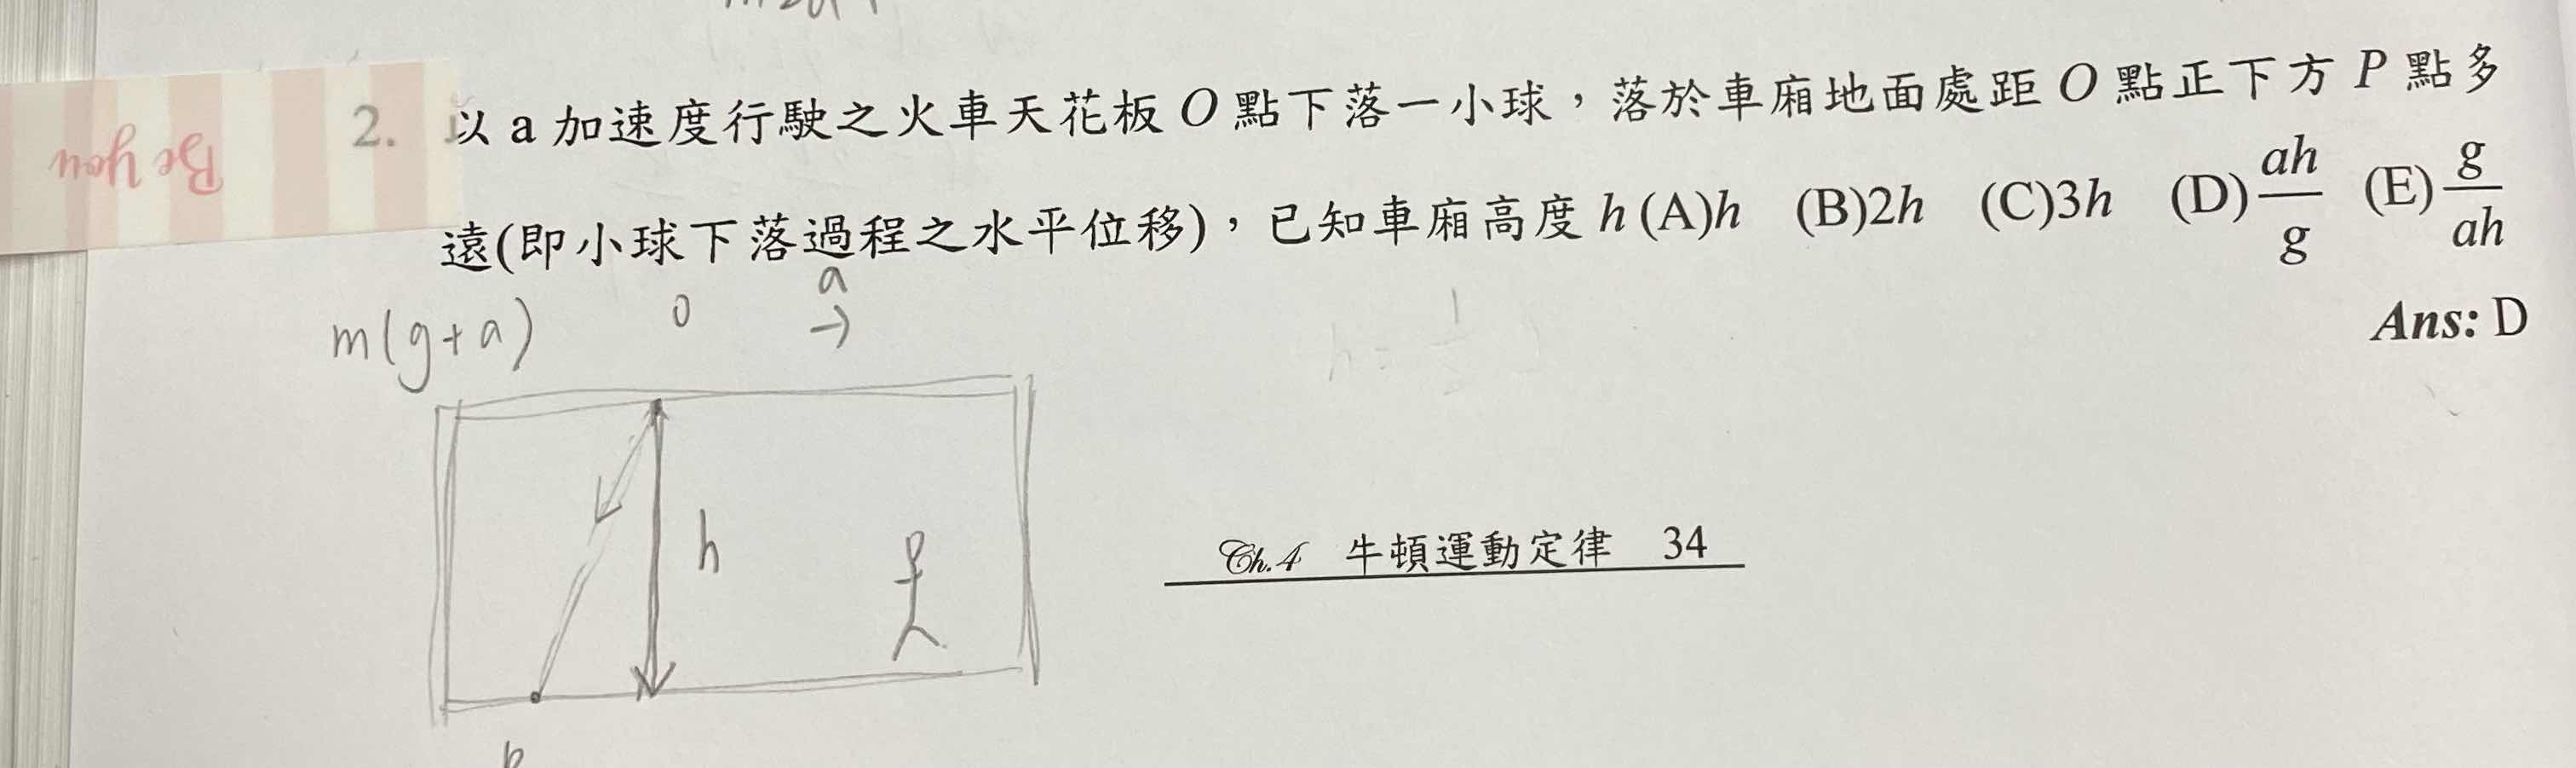 Be you
2. 以 a 加速度行駛之火車天花板 O 點下落一小球，落於車廂地面處距 O 點正下方 P 點多
遠(即小球下落過程之水平位移)，已知車廂高度 h (A)h (B)2h (C)3h (D)ah/g (E)g/ah
Ans: D
m(g+a) 0 a →
h
Ch.4 牛頓運動定律 34